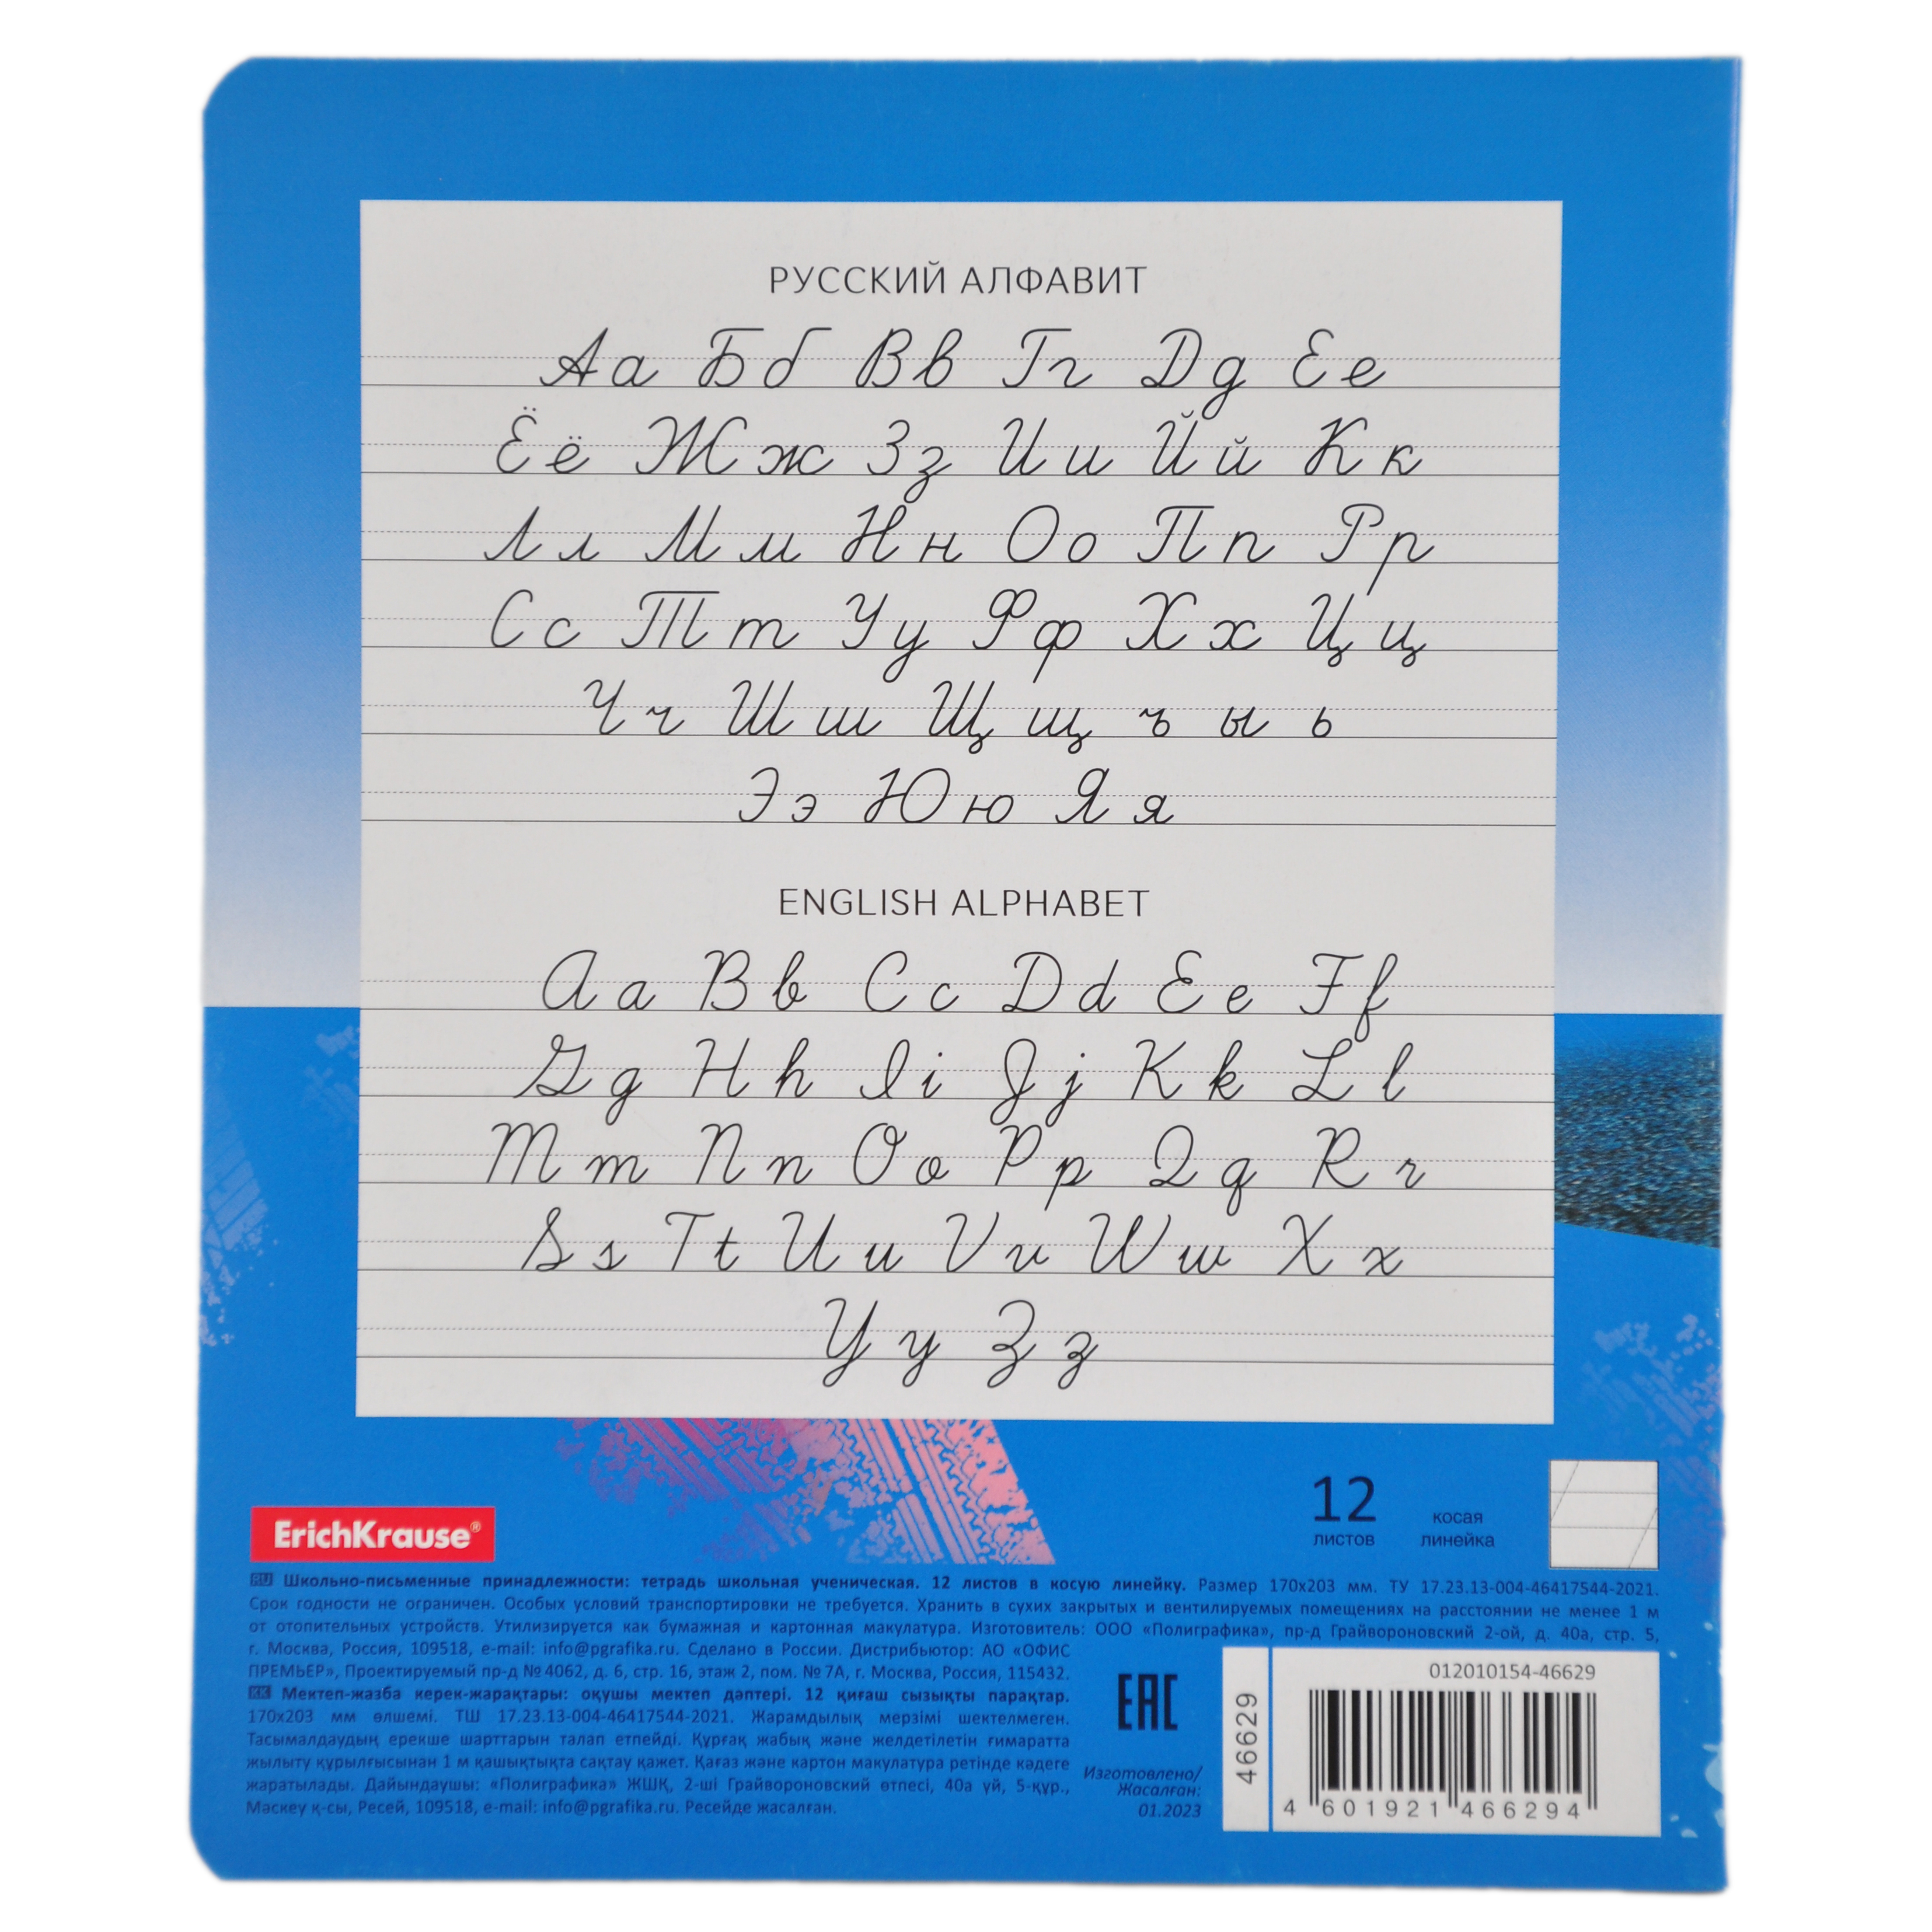 РУССКИЙ АЛФАВИТ
Аа Бб Вв Гг Дд Ее
Ёё Жж Зз Ии Йй Кк
Лл Мм Нн Оо Пп Рр
Сс Тт Уу Фф Хх Цц
Чч Шш Щщ ъ ы ь
Ээ Юю Яя
ENGLISH ALPHABET
Aa Bb Cc Dd Ee Ff
Gg Hh Ii Jj Kk Ll
Mm Nn Oo Pp Qq Rr
Ss Tt Uu Vv Ww Xx
Yy Zz
12
листов
косая
линейка
ErichKrause®
RU Школьно-письменные принадлежности: тетрадь школьная ученическая. 12 листов в косую линейку. Размер 170х203 мм. ТУ 17.23.13-004-46417544-2021.
Срок годности не ограничен. Особых условий транспортировки не требуется. Хранить в сухих закрытых и вентилируемых помещениях на расстоянии не менее 1 м
от отопительных устройств. Утилизируется как бумажная и картонная макулатура. Изготовитель: ООО «Полиграфика», пр-д Грайвороновский 2-ой, д. 40а, стр. 5,
г. Москва, Россия, 109518, e-mail: info@pgrafika.ru. Сделано в России. Дистрибьютор: АО «ОФИС
ПРЕМЬЕР», Проектируемый пр-д №4062, д. 6, стр. 16, этаж 2, пом. №7А, г. Москва, Россия, 115432.
KK Мектеп-жазба керек-жарақтары: оқушы мектеп дәптері. 12 қиғаш сызықты парақтар.
170х203 мм өлшемі. ТШ 17.23.13-004-46417544-2021. Жарамдылық мерзімі шектелмеген.
Тасымалдаудың ерекше шарттарын талап етпейді. Құрғақ жабық және желдетілетін ғимаратта
жылыту құрылғысынан 1 м қашықтықта сақтау қажет. Қағаз және картон макулатура ретінде кәдеге
жаратылады. Дайындаушы: «Полиграфика» ЖШҚ, 2-ші Грайвороновский өтпесі, 40а үй, 5-құр.,
Мәскеу қ-сы, Ресей, 109518, e-mail: info@pgrafika.ru. Ресейде жасалған.
EAC
Изготовлено/
Жасалған:
01.2023
46629
012010154-46629
4 601921 466294